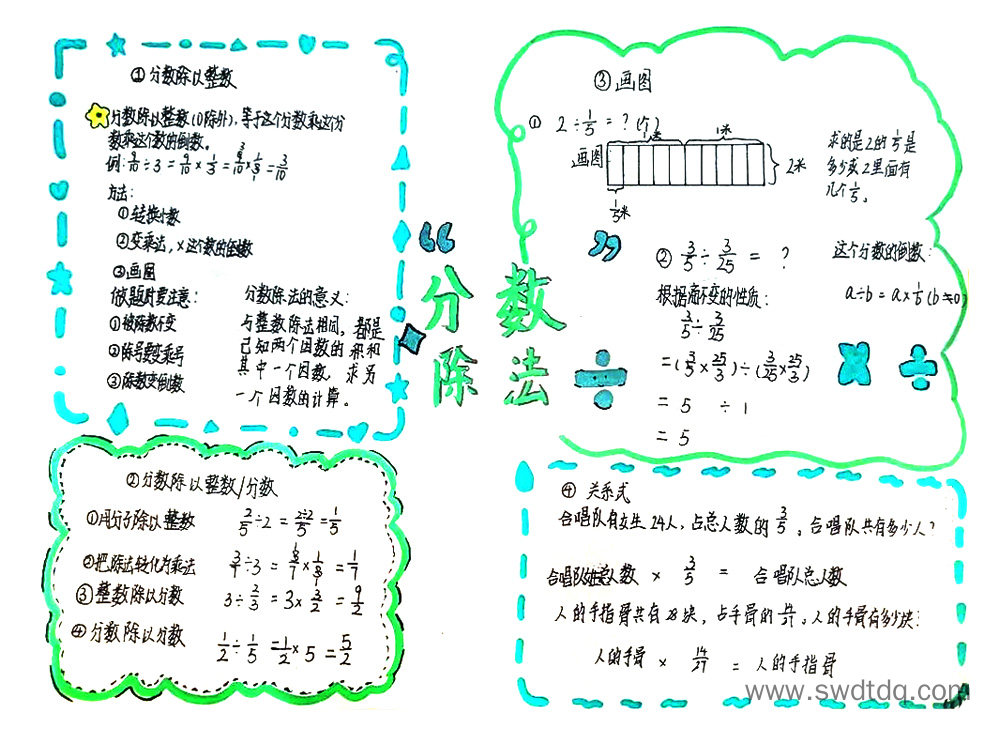 ①分数除以整数
分数除以整数(0除外),等于这个分数乘这个分
数乘这个数的倒数。
例: 9/10÷3 = 9/10×1/3 = 9/10×1/3 = 3/10
方法:
①转换小数
②变乘法,×这个数的倒数
③画图
做题时要注意:
①被除数不变
②除号要变乘号
③除数变倒数
分数除法的意义:
与整数除法相同,都是
已知两个因数的积和
其中一个因数,求另
一个因数的计算。
②分数除以整数/分数
①用分子除以整数 2/5÷2 = 2÷2/5 = 1/5
②把除法转化为乘法 3/7÷3 = 3/7×1/3 = 1/7
③整数除以分数 3÷2/3 = 3×3/2 = 9/2
④分数除以分数 1/2÷1/5 = 1/2×5 = 5/2
“
分数
除法
”
÷
③画图
① 2÷1/5 = ?(个)
1米
画图
2米
1/5米
求的是2的1/5是
多少或2里面有
几个1/5。
② 3/5÷3/25 = ?
根据商不变的性质:
3/5÷3/25
=(3/5×25/3)÷(3/25×25/3)
= 5 ÷ 1
= 5
这个分数的倒数:
a÷b = a×1/b(b≠0)
× ÷
④ 关系式
合唱队有女生24人,占总人数的3/5。合唱队共有多少人?
× 3/5 = 合唱队总人数
人的手指骨共有28块,占手骨的。人的手骨有多少块:
人的手骨 × 14/27 = 人的手指骨
www.swdtdq.com